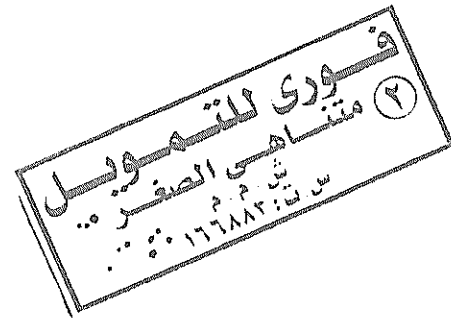 فورى للتمويل
متناهى الصغر
ش.م.م
س.ت: ١٦٦٨٨٣
٢